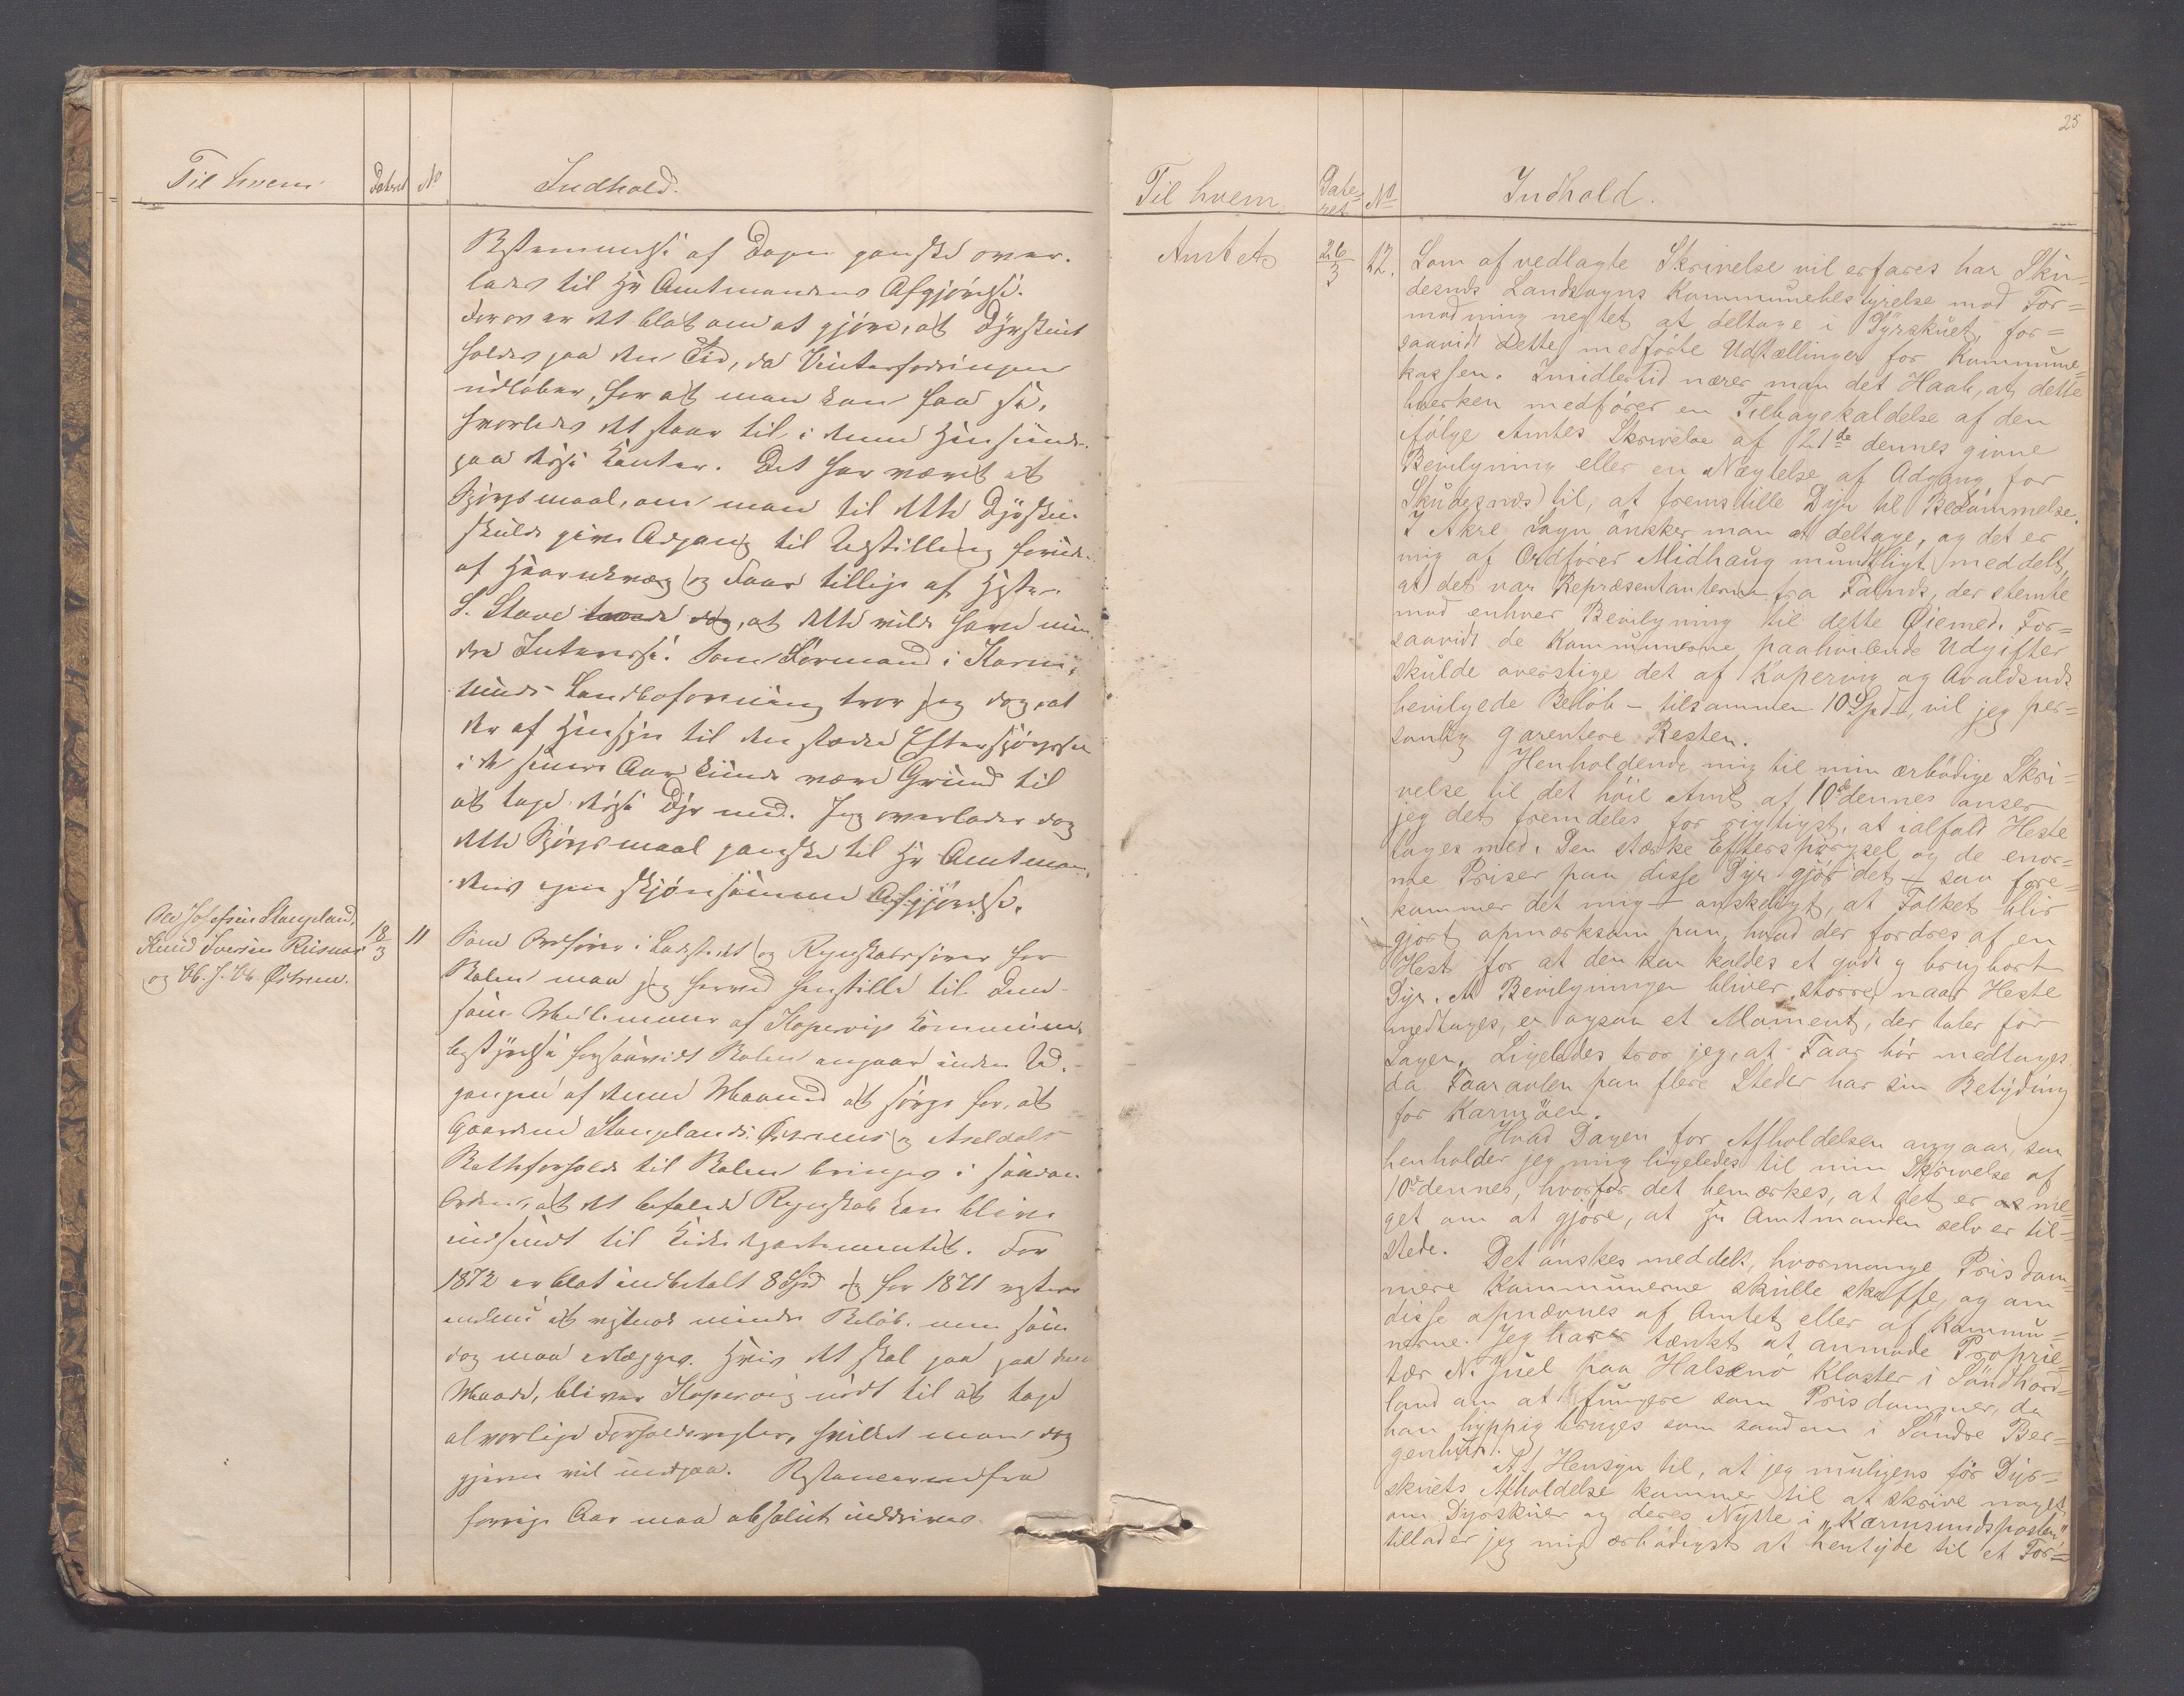 Til hvem
Dateret
No
Indhold.
Bestemmelse af Dagen ganske over-
lades til Hr Amtmandens Afgjörelse.
Derover er det blot om at gjöre, at Dyrskuet
holdes paa den Tid, da Vinterfodringen
udlöber, for at man kan faa se,
hvorledes det staar til i denne Henseende
paa disse Kanter. Det har været et
Spörgsmaal, om man til dette Dyrskue
skulde give Adgang til Udstilling foruden
af Hornkvæg og Faar tillige af Heste.
S. Stave, at dette vilde have min-
dre Interesse. Som Formand i Karm-
sunds Landboforening tror jeg dog, at
der af Hensyn til den stærke Efterspörgsel
i de senere Aar kunde være Grund til
at tage disse Dyr med. Jeg overlader dog
dette Spörgsmaal ganske til Hr Amtman-
dens egen skjönsomme Afgjörelse.
Ole Josefsen Stangeland,
Knud Iversen Risnes
og Ob. J. Ob. Östrem.
18/3
11
Som Ordförer i Ladestedet og Regnskabsförer for
Rolen maa jeg herved henstille til Dem
som Medlemmer af Kopervigs Kommune-
bestyrelse forsaavidt Rolen angaar inden Ud-
gangen af denne Maaned at sörge for, at
Gaardene Stangelands, Östrems og Aseldals
Retsforholde til Rolen bringes i saadan
Orden, at det befalede Regnskab kan blive
indsendt til Kirkedepartementet. For
1872 er blot indbetalt 8 Spd og for 1871 resterer
endnu et mindre Belöb, men som
dog maa erlægges. Hvis det skal gaa paa denne
Maade, bliver Kopervig nödt til at tage
alvorlige Forholdsregler, hvilket man dog
gjerne vil undgaa. Restancerne fra
forrige Aar maa absolut inddrives.
25
Til hvem
Date-
ret
No
Indhold.
Amtet
26/3
12.
Som af vedlagte Skrivelse vil erfares har Sku-
desnds Landsogns Kommunebestyrelse mod For-
modning negtet at deltage i Dyrskuet, for-
saavidt dette medförte Udtællinger for Kommune-
kassen. Imidlertid nærer man det Haab, at dette
hverken medförer en Tilbagekaldelse af den
ifölge Amtets Skrivelse af 21de dennes givne
Bevilgning eller en Nægtelse af Adgang for
Skudesnds til, at fremstille Dyr til Bedömmelse.
I Akre Sogn önsker man at deltage, og det er
mig af Ordförer Midhaug mundtligt meddelt,
at det var Repræsentanterne fra Falnds, der stemte
mod enhver Bevilgning til dette Øiemed. For-
saavidt de Kommunerne paahvilende Udgifter
skulde overstige det af Kopervig og Avaldsnds
bevilgede Belöb – tilsammen 10 Spd –, vil jeg per-
sonlig garentere Resten.
Henholdende mig til min ærbödige Skri-
velse til det höie Amt af 10de dennes anser
jeg det fremdeles for rigtigst, at ialfald Heste
tages med. Den stærke Efterspörgsel og de enor-
me Priser paa disse Dyr gjör det – saa fore-
kommer det mig – önskeligt, at Folket blir
gjort opmærksom paa, hvad der fordres af en
Hest for at den kan kaldes et godt og brugbart
Dyr. At Bevilgningen bliver större, naar Heste
medtages, er ogsaa et Moment, der taler for
Sagen. Ligeledes tror jeg, at Faar bör medtages
da Faaravlen paa flere Steder har sin Betydning
for Karmöen.
Hvad Dagen for Afholdelsen angaar, saa
henholder jeg mig ligeledes til min Skrivelse af
10de dennes, hvorfor det bemærkes, at det er os me-
get om at gjöre, at Hr Amtmanden selv er til-
stede. Det önskes meddelt, hvormange Prisdom-
mere Kommunerne skulle skaffe, og om
disse opnævnes af Amtet eller af Kommu-
nerne. Jeg har tænkt at anmode Proprie-
tær N. Juel paa Halsenö Kloster i Söndhord-
land om at fungere som Prisdommer, da
han hyppig bruges som saadan i Söndre Ber-
genhus.
Af Hensyn til, at jeg muligens för Dyr-
skuets Afholdelse kommer til at skrive noget
om Dyrskuer og deres Nytte i „Karmsundsposten"
tillader jeg mig ærbödigst at hentyde til et For-